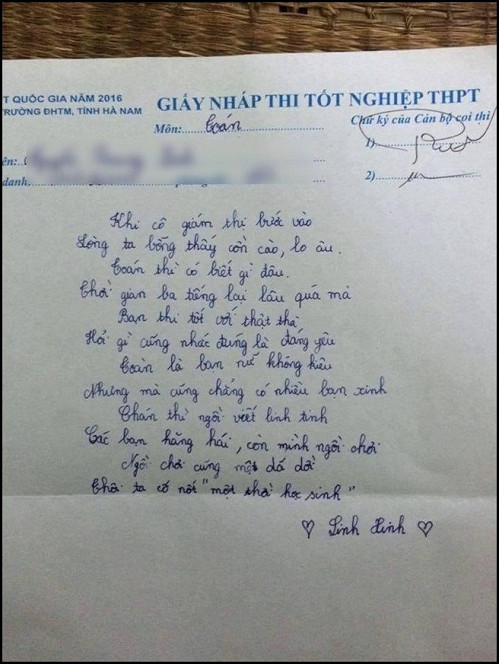 T QUỐC GIA NĂM 2016
TRƯỜNG ĐHTM, TỈNH HÀ NAM
GIẤY NHÁP THI TỐT NGHIỆP THPT
Môn: Toán
Chữ ký của Cán bộ coi thi
1)
2)
ên:
danh
Khi cô giám thị bước vào
Lòng ta bỗng thấy cồn cào, lo âu.
Toán thì có biết gì đâu.
Thời gian ba tiếng lại lâu quá mà
Bạn thi tốt với thật thà
Hỏi gì cũng nhắc đúng là đáng yêu
Toàn là bạn nữ không kiêu
Nhưng mà cũng chẳng có nhiều bạn xinh
Chán thì ngồi viết linh tinh
Các bạn hăng hái, còn mình ngồi chơi
Ngồi chơi cũng mệt dã dời
Thôi ta cố nốt "một thời học sinh"
♡ Linh Xinh ♡